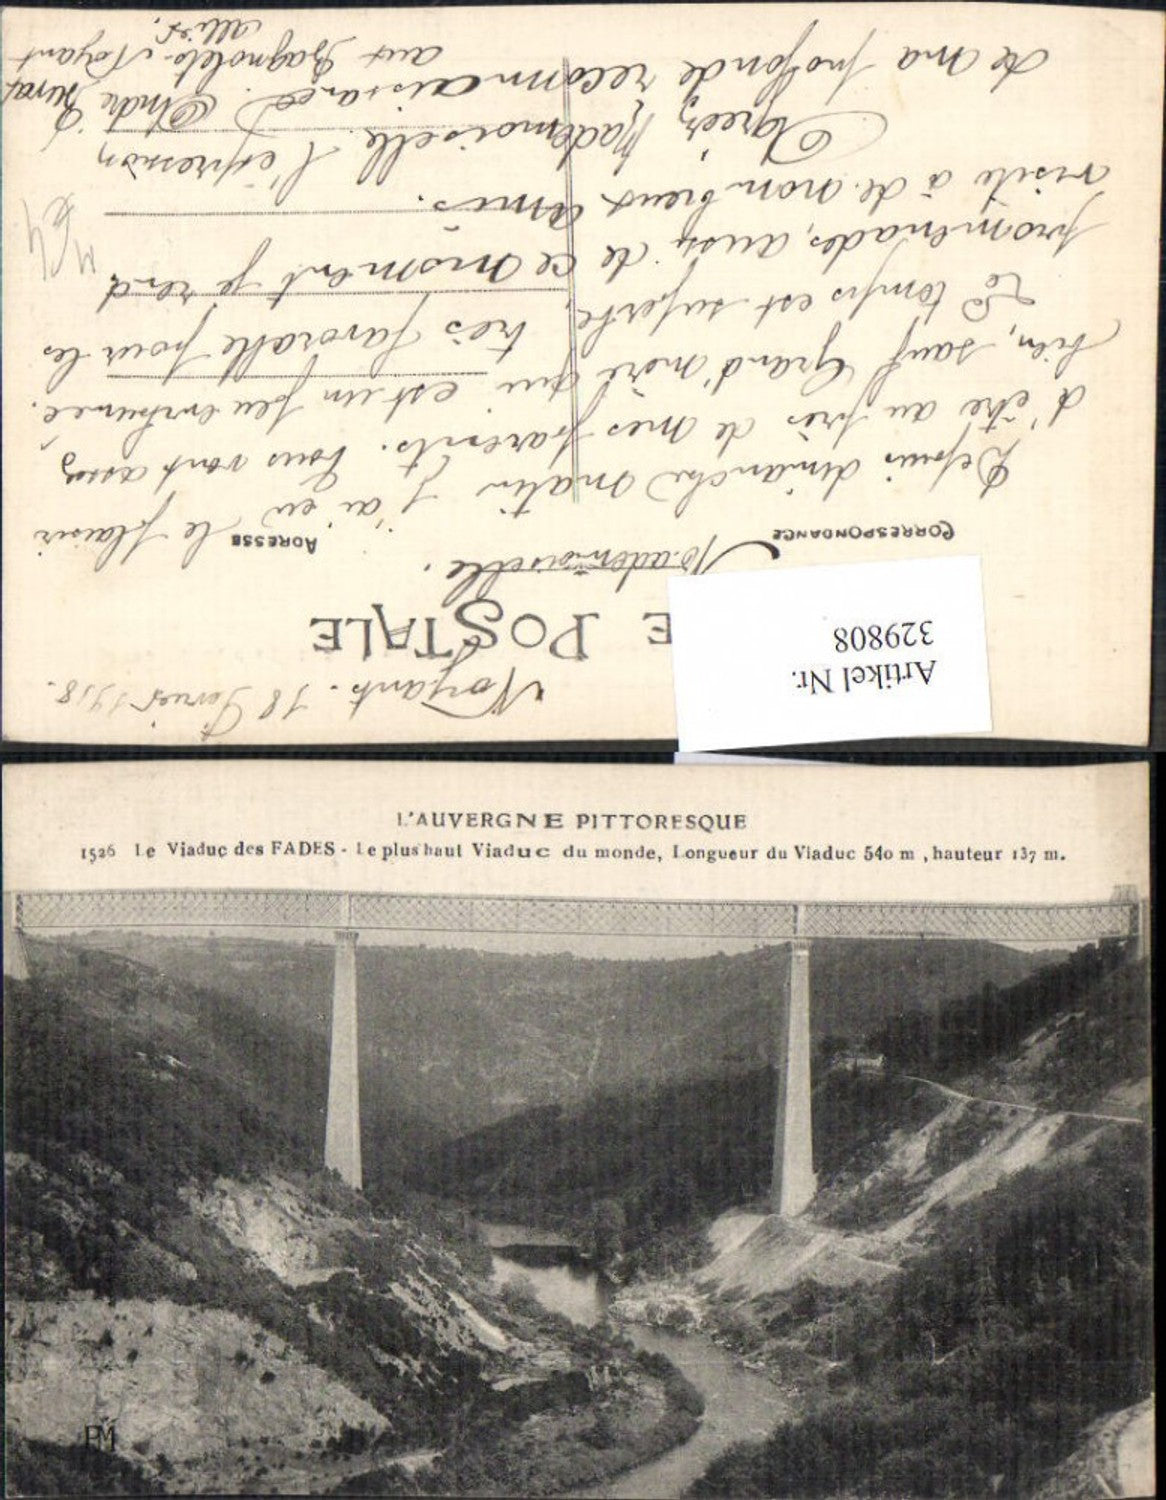 Noyant. 18 Février 1918.
E POSTALE
Artikel Nr.
329808
Mademoiselle.
CORRESPONDANCE
ADRESSE
Depuis dimanche matin j'ai eu le plaisir
d'être au près de mes parents. Tous vont assez
bien, sauf Grand'mère qui est un peu enrhumée.
Le temps est superbe, très favorable pour les
promenades, aussi de ce moment je rend
visite à de nombreux amis.
Agréez, Mademoiselle, l'expression
de ma profonde reconnaissance. André
aux Bagnolets - Noyant
Allier.
L'AUVERGNE PITTORESQUE
1526 Le Viaduc des FADES - Le plus haut Viaduc du monde, Longueur du Viaduc 540 m, hauteur 137 m.
PM